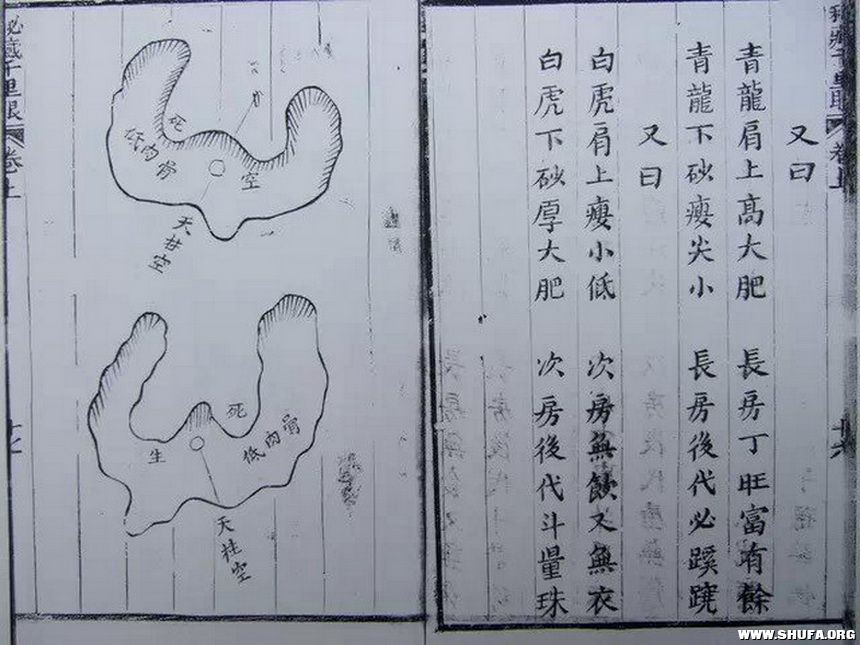 秘藏千里眼 卷上
又曰
青龍肩上高大肥 長房丁旺富有餘
青龍下砂瘦尖小 長房後代必蹊蹺
又曰
白虎肩上瘦小低 次房無飲又無衣
白虎下砂厚大肥 次房後代斗量珠
死
低肉骨
空
天柱空
死
生
低肉骨
天柱空
秘藏千里眼 卷上
WWW.SHUFA.ORG